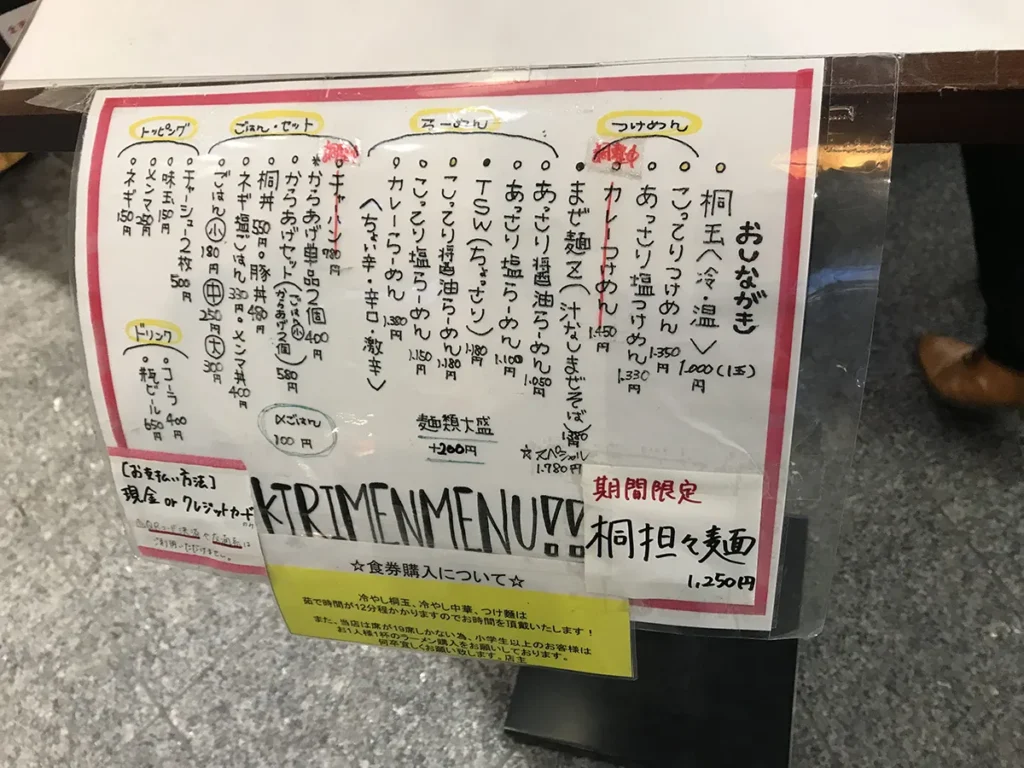 おしながき
つけめん
桐玉〈冷・温〉1,000(1玉)円
こってりつけめん 1,350円
あっさり塩つけめん 1,330円
カレーつけめん 1,450円
まぜ麺Z(汁なしまぜそば)
☆スペシャル 1,780円
らーめん
あっさり醤油らーめん 1,050円
あっさり塩らーめん 1,100円
TSW(ちょっさり) 1,180円
こってり醤油らーめん 1,180円
こってり塩らーめん 1,150円
カレーらーめん 1,380円
〈ちょい辛・辛口・激辛〉
麺類大盛
+200円
ごはん・セット
チャーハン 780円
*からあげ単品2個 400円
からあげセット(ごはん小 からあげ2個) 580円
桐丼 550円・豚丼 480円
ネギ塩ごはん 330円・メンマ丼 400円
ごはん 小 180円 中 250円 大 300円
〆ごはん
100円
トッピング
チャーシュー2枚 500円
味玉 150円
メンマ
ネギ 150円
ドリンク
コーラ 400円
瓶ビール 650円
[お支払い方法]
現金 or クレジットカード
ご利用いただけません。
KIRIMENMENU!!
期間限定
桐担々麺
1,250円
☆食券購入について☆
冷やし桐玉、冷やし中華、つけ麺は
茹で時間が12分程かかりますのでお時間を頂戴いたします！
また、当店は席が19席しかない為、小学生以上のお客様は
お1人様1杯のラーメン購入をお願いしております。
何卒宜しくお願い致します。店主